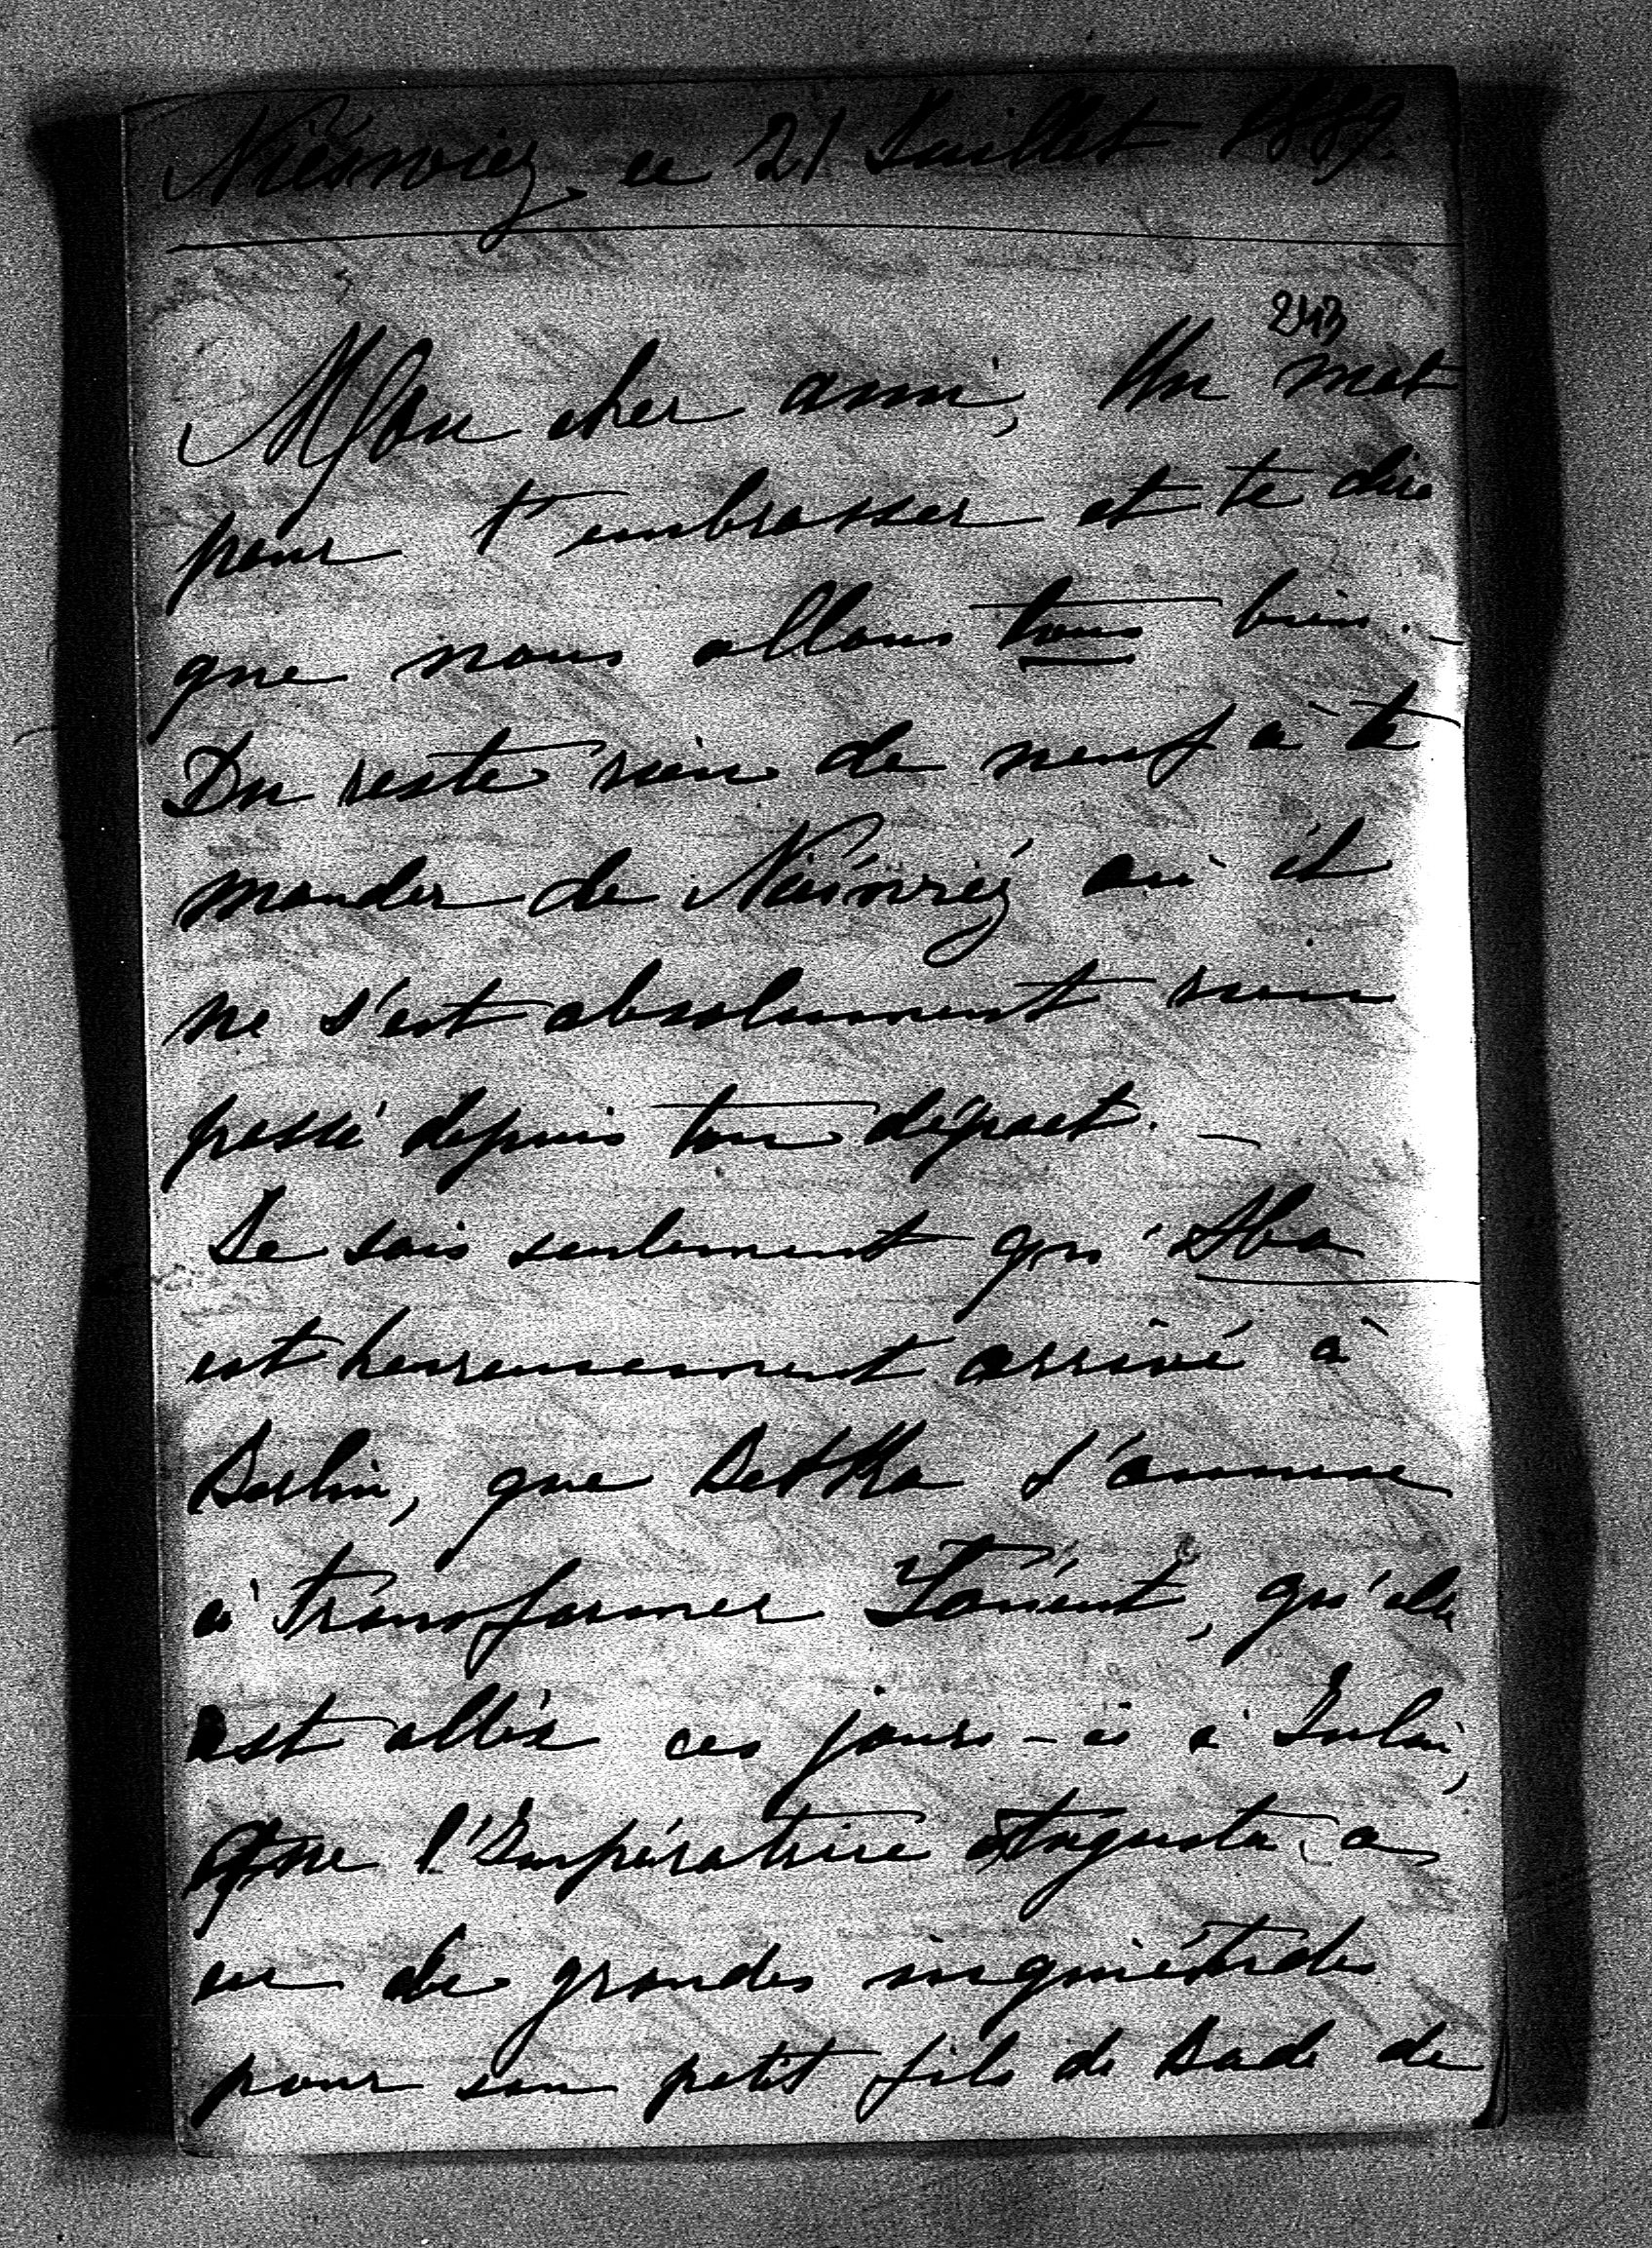 Nieświeź, ce 21 Juillet 1889.
243
Mon cher ami, Un mot
pour t'embrasser et te dire
que nous allons tous bien. _
Du reste rien de neuf à te
mander de Nieśwież où il
ne s'est absolument rien
passé depuis ton départ. _
Je sais seulement qu'Aba
est heureusement arrivé à
Berlin, que Betka s'amuse
à transformer, qu'elle
est allée ces jours-ci à
que l'Impératrice Augusta a
eu de grandes inquiétudes
pour son petit fils de Bade de